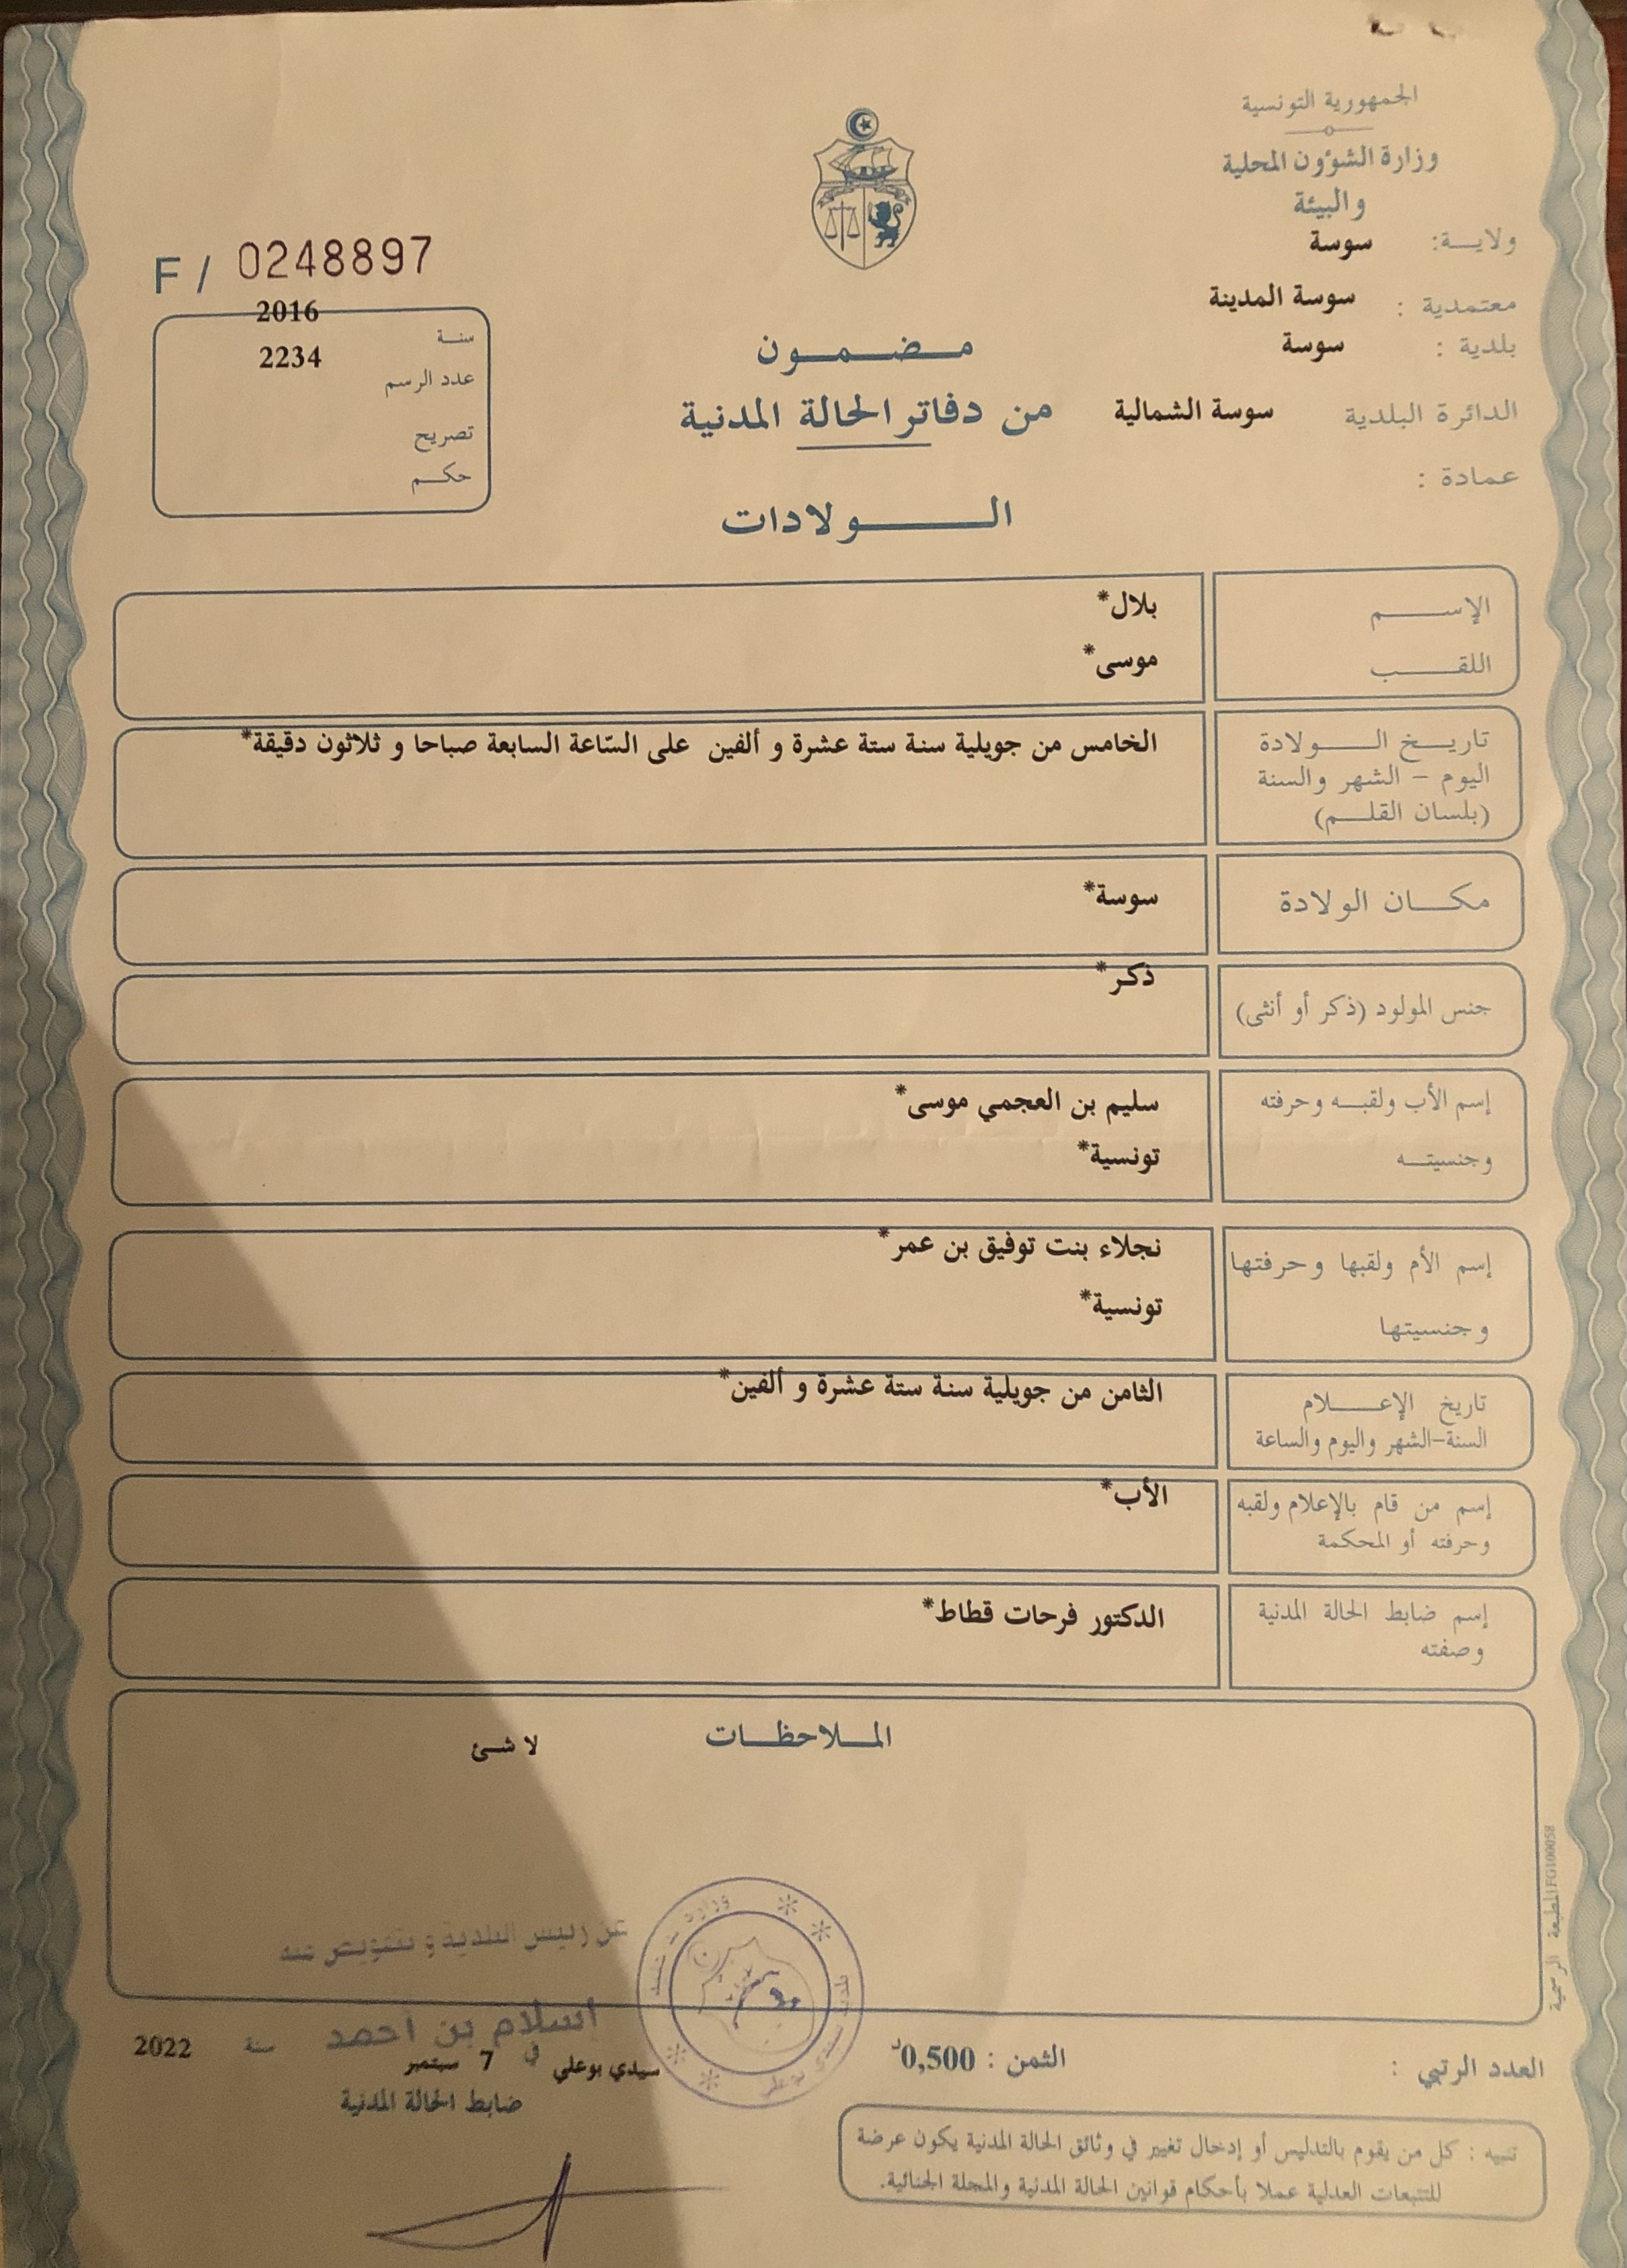 الجمهورية التونسية
وزارة الشؤون المحلية
والبيئة
ولايـــة: سوسة
معتمدية : سوسة المدينة
بلدية : سوسة
الدائرة البلدية سوسة الشمالية
عمادة :
F / 0248897
سنة 2016
عدد الرسم 2234
تصريح
حكم
مـضـمـون
من دفاتر الحالة المدنية
الــولادات
الإســـم بلال*
اللقــب موسى*
تاريـخ الـــولادة الخامس من جويلية سنة ستة عشرة و ألفين على السّاعة السابعة صباحا و ثلاثون دقيقة*
اليوم – الشهر والسنة
(بلسان القلــم)
مكـــان الولادة سوسة*
جنس المولود (ذكر أو أنثى) ذكر*
إسم الأب ولقبــه وحرفته سليم بن العجمي موسى*
وجنسيتــه تونسية*
إسم الأم ولقبها وحرفتها نجلاء بنت توفيق بن عمر*
وجنسيتها تونسية*
تاريخ الإعـــلام الثامن من جويلية سنة ستة عشرة و ألفين*
السنة–الشهر واليوم والساعة
إسم من قام بالإعلام ولقبه الأب*
وحرفته أو المحكمة
إسم ضابط الحالة المدنية الدكتور فرحات قطاط*
وصفته
الملاحظـات
لا شئ
عن رئيس البلدية و بتفويض منه
اسلام بن احمد
العدد الرتبي :
الثمن : 0,500د
سيدي بوعلي في 7 سبتمبر سنة 2022
ضابط الحالة المدنية
تنبيه : كل من يقوم بالتدليس أو إدخال تغيير في وثائق الحالة المدنية يكون عرضة
للتتبعات العدلية عملا بأحكام قوانين الحالة المدنية والمجلة الجنائية.
المطبعة الرسمية FG100058
بلدية سيدي بوعلي